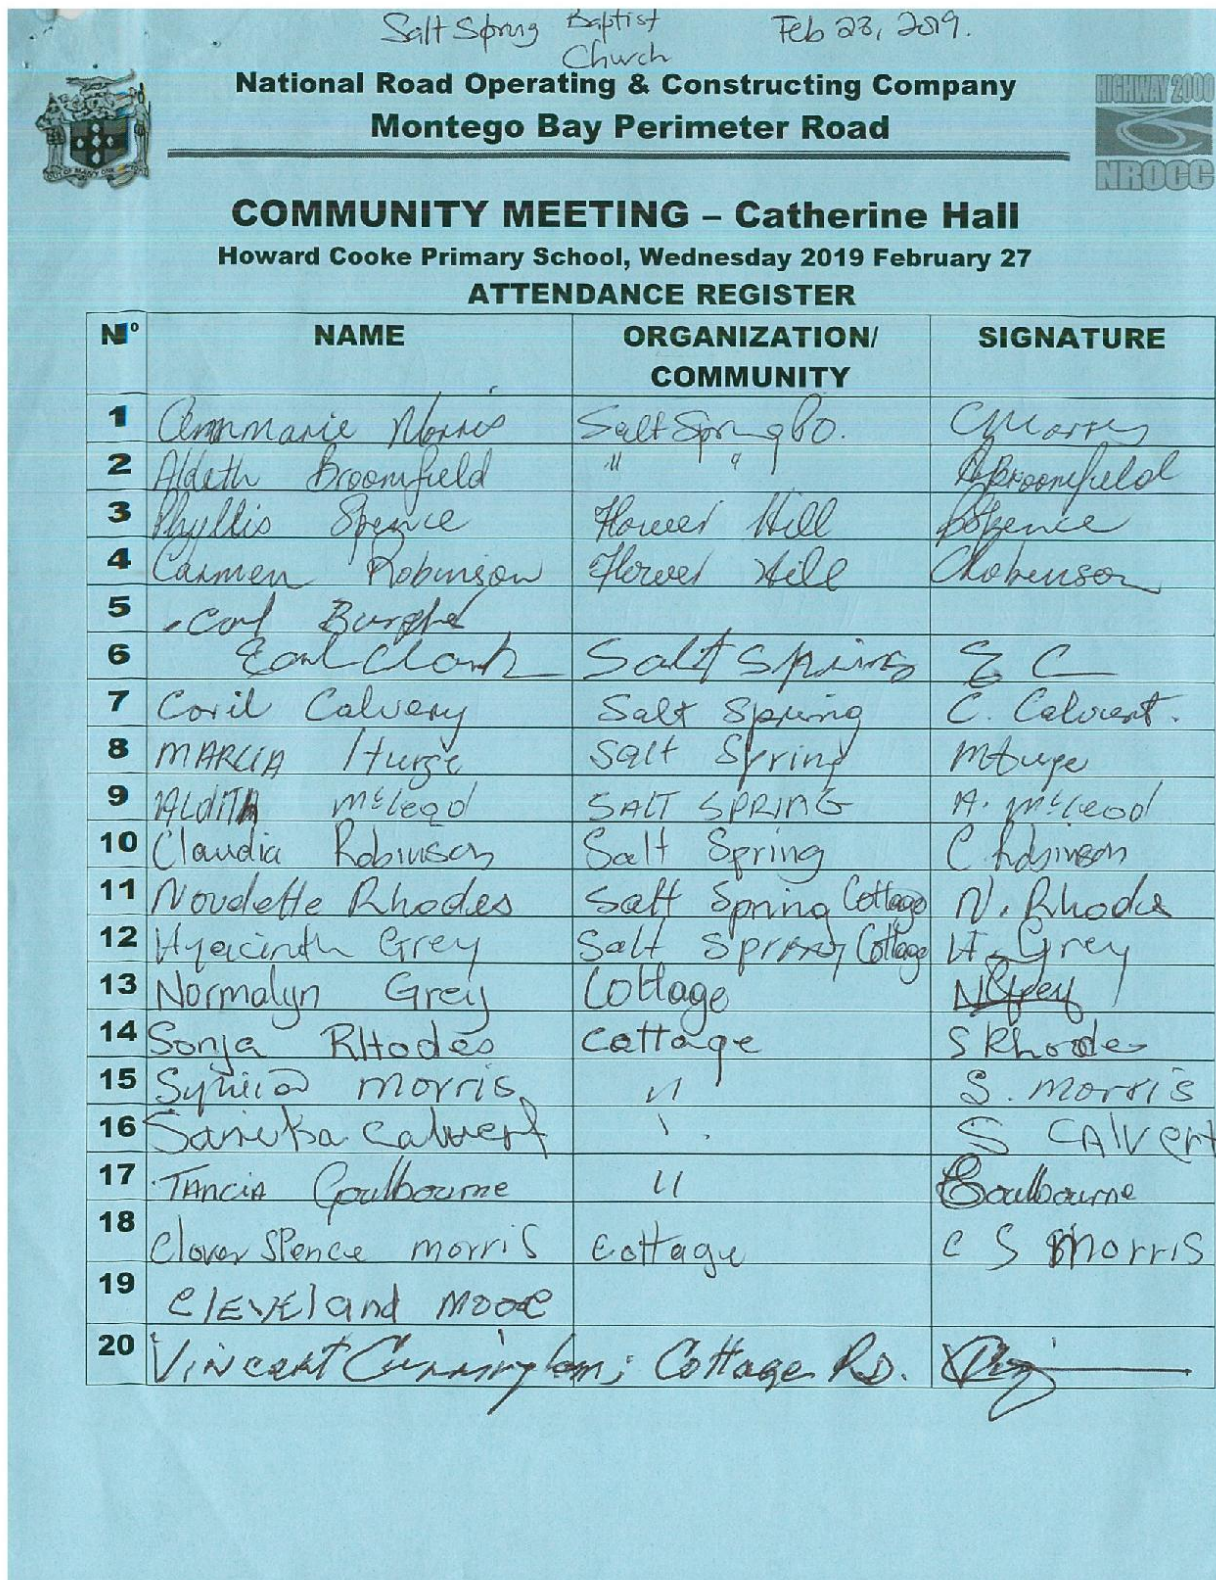 Salt Spring Baptist Feb 23, 2019.
Church
National Road Operating & Constructing Company
Montego Bay Perimeter Road
HIGHWAY 2000
NROCC
COMMUNITY MEETING – Catherine Hall
Howard Cooke Primary School, Wednesday 2019 February 27
ATTENDANCE REGISTER
Nº NAME ORGANIZATION/ SIGNATURE
COMMUNITY
1 Annmarie Morris Salt Spring P.O. CMorris
2 Aldeth Broomfield " " ABroomfield
3 Phyllis Spence Flower Hill PSpence
4 Carmen Robinson Flower Hill CRobinson
5 Carl
6 Earl Clark Salt Spring E C
7 Coril Calvery Salt Spring C. Calvert.
8 MARCIA Salt Spring
9 Aldith McLeod SALT SPRING A. McLeod
10 Claudia Robinson Salt Spring C Robinson
11 Noudette Rhodes Salt Spring Cottage N. Rhodes
12 Hyacinth Grey Salt Spring Cottage H. Grey
13 Normalyn Grey Cottage NGrey
14 Sonja RHodes Cottage S Rhodes
15 morris " S. morris
16 Calvert " S CAlvert
17 TAnciA Goulbourne " Goulbourne
18 Clover Spence morris Cottage C S Morris
19 ClEvEland mooRe
20 Vincent Cunningham; Cottage Rd.